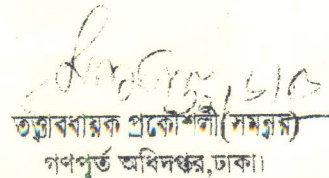 তত্ত্বাবধায়ক প্রকৌশলী(সমন্বয়)
গণপূর্ত অধিদপ্তর,ঢাকা।